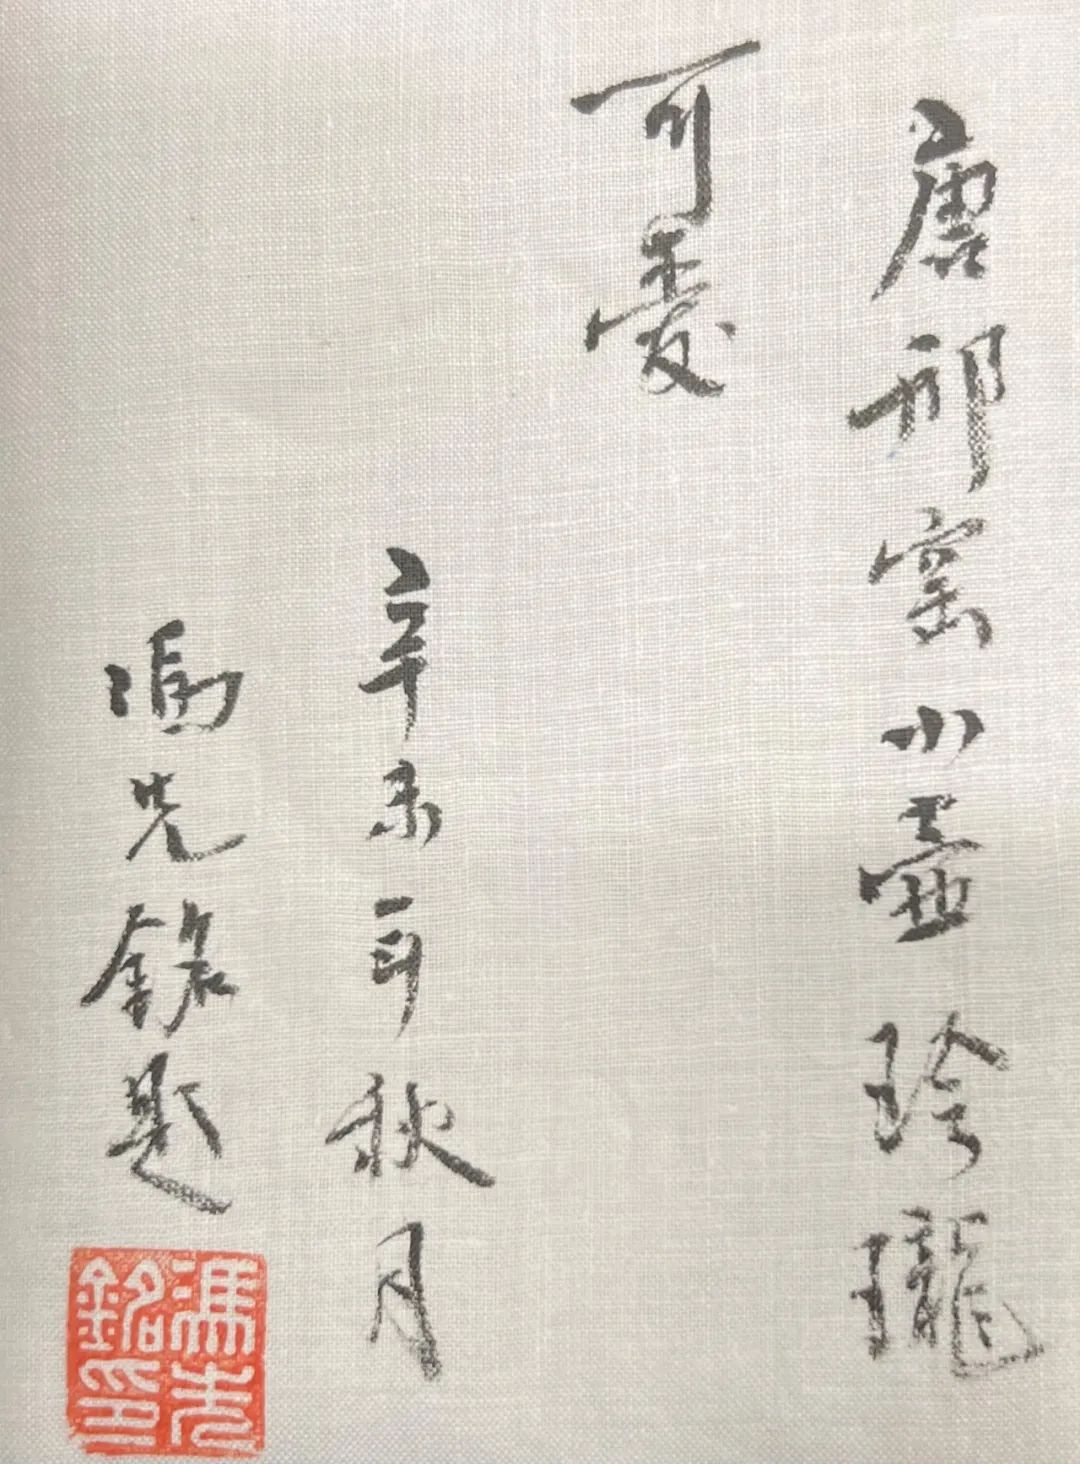 唐邢窑小壺玲瓏
可愛
辛未年秋月
馮先銘題
馮先銘印